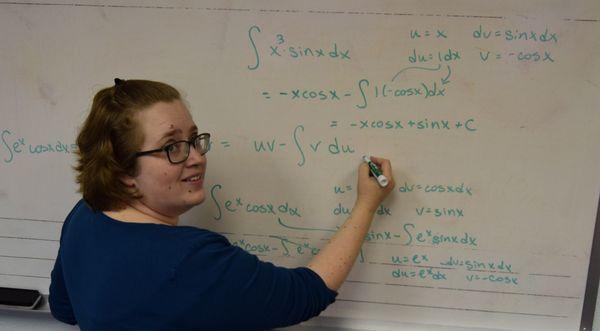 ∫ x³·sinx dx   u = x   dv = sinx dx
du = 1dx   v = -cosx
= -xcosx - ∫ 1(-cosx)dx
= -xcosx + sinx + C
∫e^x cosx dx = uv - ∫ v du
∫e^x cosx dx   u =   dv = cosx dx
du   dx   v = sinx
sinx - ∫e^x sinx dx
e^x cosx - ∫ e^x   u = e^x   dv = sinx dx
du = e^x dx   v = -cosx